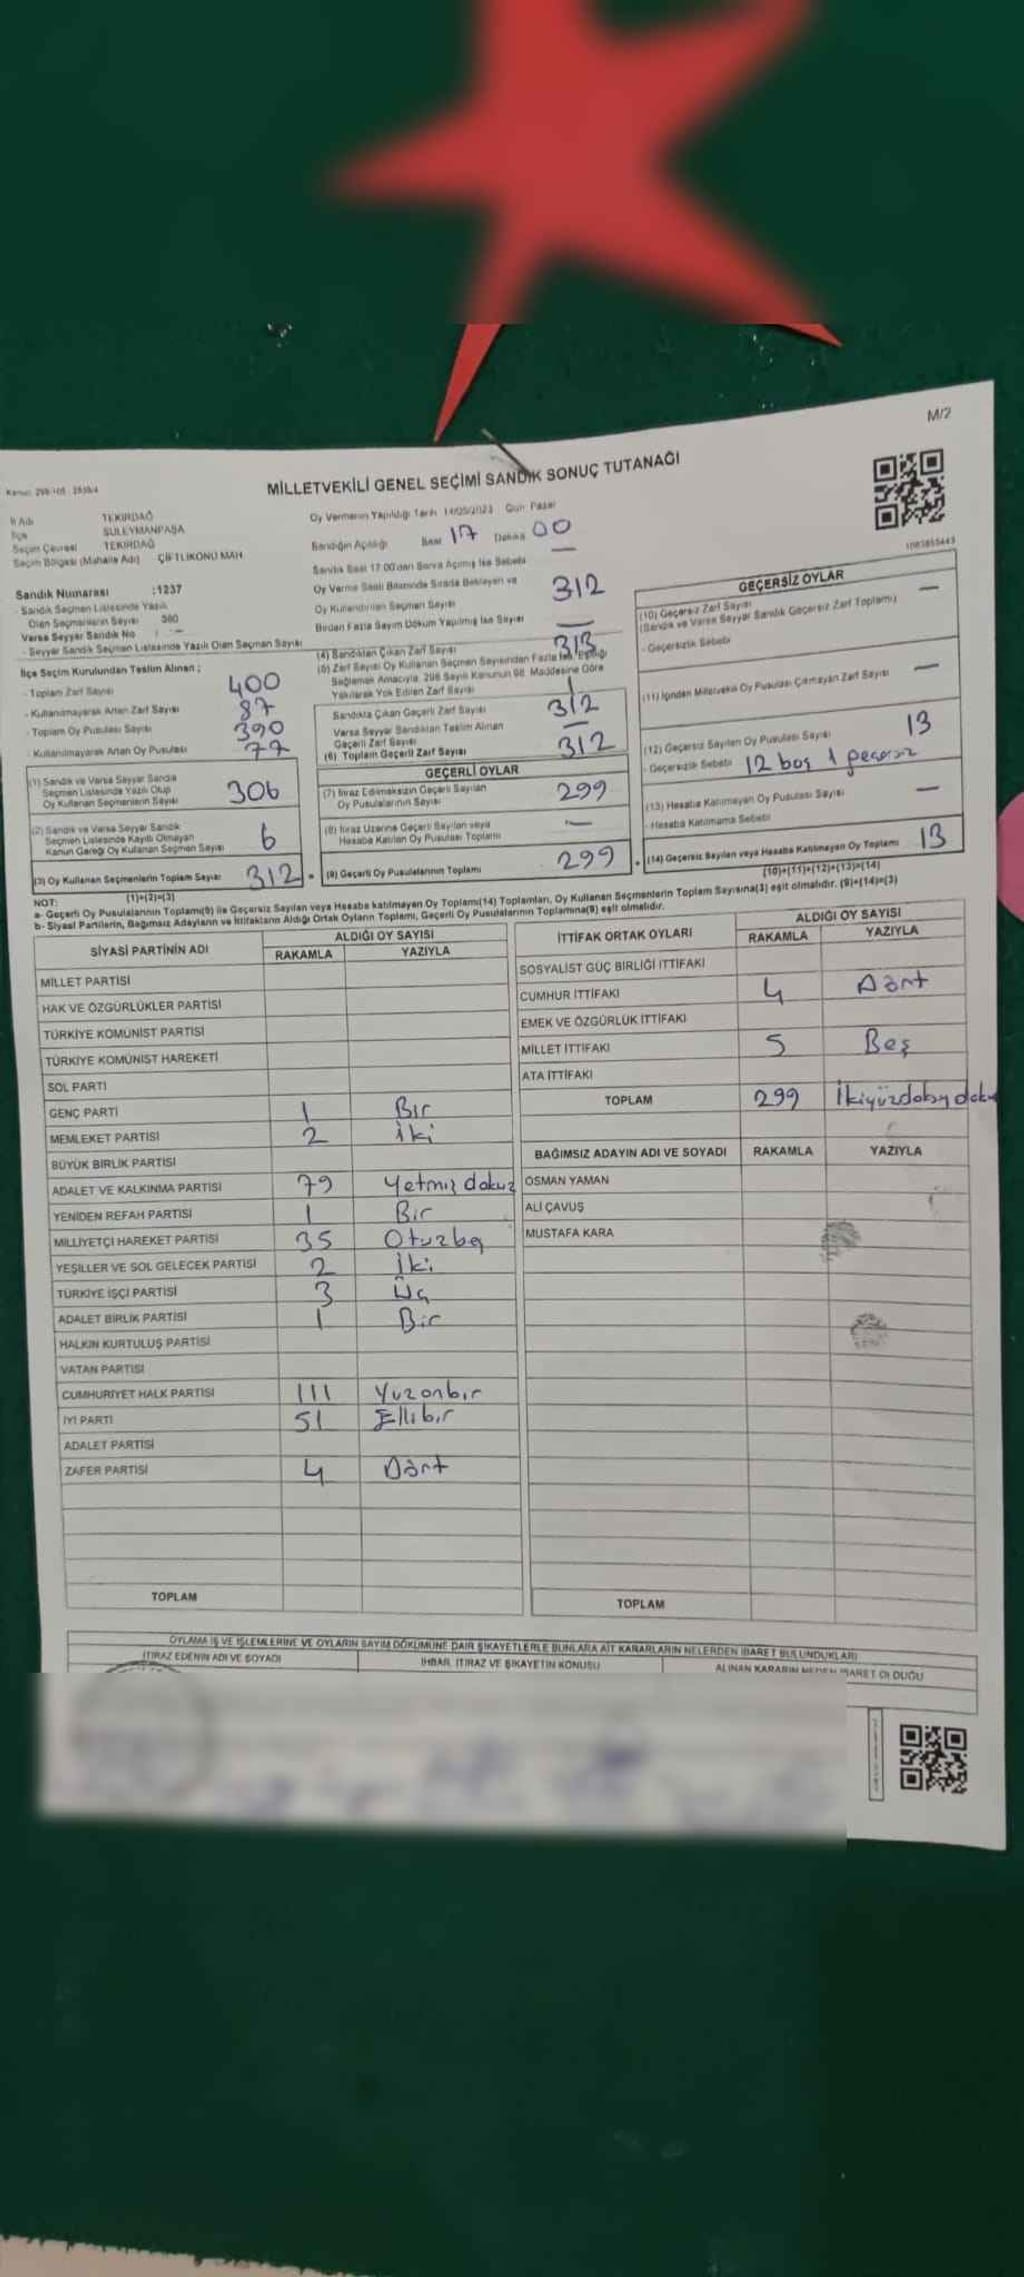 M/2
MİLLETVEKİLİ GENEL SEÇİMİ SANDIK SONUÇ TUTANAĞI
İl Adı TEKİRDAĞ
İlçe SÜLEYMANPAŞA
Seçim Çevresi TEKİRDAĞ
Seçim Bölgesi (Mahalle Adı) ÇİFTLİKÖNÜ MAH.
Oy Vermenin Yapıldığı Tarih 14/05/2023 Gün Pazar
Sandığın Açılışı Saat 17 Dakika 00
Sandık Saat 17:00'dan Sonra Açılmış İse Sebebi —
Oy Verme Saati Bitiminde Sırada Bekleyen ve
Oy Kullandırılan Seçmen Sayısı 312
Birden Fazla Sayım Döküm Yapılmış İse Sayısı —
Sandık Numarası :1237
- Sandık Seçmen Listesinde Yazılı
Olan Seçmenlerin Sayısı 360
Varsa Seyyar Sandık No : -
- Seyyar Sandık Seçmen Listesinde Yazılı Olan Seçmen Sayısı
İlçe Seçim Kurulundan Teslim Alınan ;
- Toplam Zarf Sayısı 400
- Kullanılmayarak Artan Zarf Sayısı 87
- Toplam Oy Pusulası Sayısı 390
- Kullanılmayarak Artan Oy Pusulası 77
(1) Sandık ve Varsa Seyyar Sandık
Seçmen Listesinde Yazılı Olup
Oy Kullanan Seçmenlerin Sayısı 306
(2) Sandık ve Varsa Seyyar Sandık
Seçmen Listesinde Kayıtlı Olmayan
Kanun Gereği Oy Kullanan Seçmen Sayısı 6
(3) Oy Kullanan Seçmenlerin Toplam Sayısı 312
(1)+(2)=(3)
(4) Sandıktan Çıkan Zarf Sayısı 313
(5) Zarf Sayısı Oy Kullanan Seçmen Sayısından Fazla İse, Eşitliği
Sağlamak Amacıyla, 298 Sayılı Kanunun 98. Maddesine Göre
Yakılarak Yok Edilen Zarf Sayısı 1
Sandıkta Çıkan Geçerli Zarf Sayısı 312
Varsa Seyyar Sandıktan Teslim Alınan
Geçerli Zarf Sayısı —
(6) Toplam Geçerli Zarf Sayısı 312
GEÇERLİ OYLAR
(7) İtiraz Edilmeksizin Geçerli Sayılan
Oy Pusulalarının Sayısı 299
(8) İtiraz Üzerine Geçerli Sayılan veya
Hesaba Katılan Oy Pusulası Toplamı —
(9) Geçerli Oy Pusulalarının Toplamı 299
GEÇERSİZ OYLAR
(10) Geçersiz Zarf Sayısı —
(Sandık ve Varsa Seyyar Sandık Geçersiz Zarf Toplamı)
- Geçersizlik Sebebi
(11) İçinden Milletvekili Oy Pusulası Çıkmayan Zarf Sayısı —
(12) Geçersiz Sayılan Oy Pusulası Sayısı 13
- Geçersizlik Sebebi 12 boş 1 geçersiz
(13) Hesaba Katılmayan Oy Pusulası Sayısı —
- Hesaba Katılmama Sebebi
(14) Geçersiz Sayılan veya Hesaba Katılmayan Oy Toplamı 13
(10)+(11)+(12)+(13)=(14)
NOT:
a- Geçerli Oy Pusulalarının Toplamı(9) ile Geçersiz Sayılan veya Hesaba katılmayan Oy Toplamı(14) Toplamları, Oy Kullanan Seçmenlerin Toplam Sayısına(3) eşit olmalıdır. (9)+(14)=(3)
b- Siyasi Partilerin, Bağımsız Adayların ve İttifakların Aldığı Ortak Oyların Toplamı, Geçerli Oy Pusulalarının Toplamına(9) eşit olmalıdır.
SİYASİ PARTİNİN ADI ALDIĞI OY SAYISI
RAKAMLA YAZIYLA
MİLLET PARTİSİ
HAK VE ÖZGÜRLÜKLER PARTİSİ
TÜRKİYE KOMÜNİST PARTİSİ
TÜRKİYE KOMÜNİST HAREKETİ
SOL PARTİ
GENÇ PARTİ 1 Bir
MEMLEKET PARTİSİ 2 İki
BÜYÜK BİRLİK PARTİSİ
ADALET VE KALKINMA PARTİSİ 79 Yetmiş dokuz
YENİDEN REFAH PARTİSİ 1 Bir
MİLLİYETÇİ HAREKET PARTİSİ 35 Otuzbeş
YEŞİLLER VE SOL GELECEK PARTİSİ 2 İki
TÜRKİYE İŞÇİ PARTİSİ 3 Üç
ADALET BİRLİK PARTİSİ 1 Bir
HALKIN KURTULUŞ PARTİSİ
VATAN PARTİSİ
CUMHURİYET HALK PARTİSİ 111 Yüzonbir
İYİ PARTİ 51 Ellibir
ADALET PARTİSİ
ZAFER PARTİSİ 4 Dört
TOPLAM
İTTİFAK ORTAK OYLARI ALDIĞI OY SAYISI
RAKAMLA YAZIYLA
SOSYALİST GÜÇ BİRLİĞİ İTTİFAKI
CUMHUR İTTİFAKI 4 Dört
EMEK VE ÖZGÜRLÜK İTTİFAKI
MİLLET İTTİFAKI 5 Beş
ATA İTTİFAKI
TOPLAM 299
BAĞIMSIZ ADAYIN ADI VE SOYADI RAKAMLA YAZIYLA
OSMAN YAMAN
ALİ ÇAVUŞ
MUSTAFA KARA
TOPLAM
OYLAMA İŞ VE İŞLEMLERİNE VE OYLARIN SAYIM DÖKÜMÜNE DAİR ŞİKAYETLERLE BUNLARA AİT KARARLARIN NELERDEN İBARET BULUNDUKLARI
İTİRAZ EDENİN ADI VE SOYADI İHBAR, İTİRAZ VE ŞİKAYETİN KONUSU ALINAN KARARIN NEDEN İBARET OLDUĞU